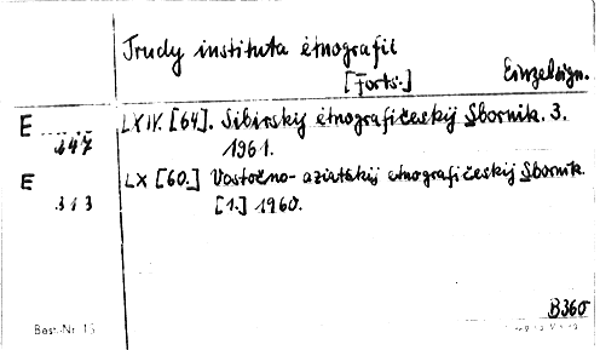 Trudy instituta ėtnografii
[Forts.] Einzelsign.
E 347 LXIV. [64]. Sibirskij ėtnografičeskij Sbornik. 3.
1961.
E 313 LX [60.] Vostočno-aziatskij etnografičeskij Sbornik.
[1.] 1960.
B360
Best.-Nr. 13